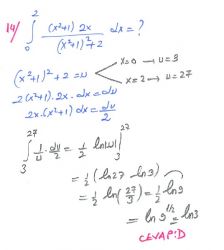 14/ ∫₀² (x²+1) 2x / ((x²+1)²+2) dx = ?
(x²+1)²+2 = u
x=0 → u=3
x=2 → u=27
2(x²+1).2x.dx = du
2x.(x²+1) dx = du/2
∫₃²⁷ 1/u . du/2 = 1/2 ln|u| |₃²⁷
= 1/2 (ln27 - ln3)
= 1/2 ln(27/3) = 1/2 ln9
= ln9^(1/2) = ln3
CEVAP:D